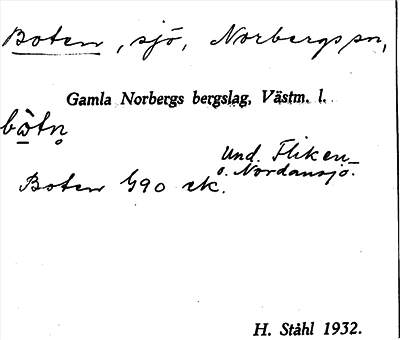 Boten, sjö, Norbergs sn,
Gamla Norbergs bergslag, Västm. l.
bò̲tn̥
Und. Fliken
o. Nordansjö.
Boten G90 ek.
H. Ståhl 1932.